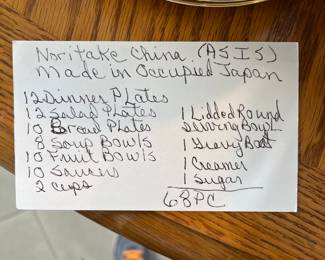 Noritake China (ASIS)
Made in Occupied Japan
12 Dinner Plates
12 Salad Plates
10 Bread Plates
8 Soup Bowls
10 Fruit Bowls
10 Saucers
2 cups
1 Lidded Round
Serving Bowl
1 Gravy Boat
1 Creamer
1 Sugar
68 PC